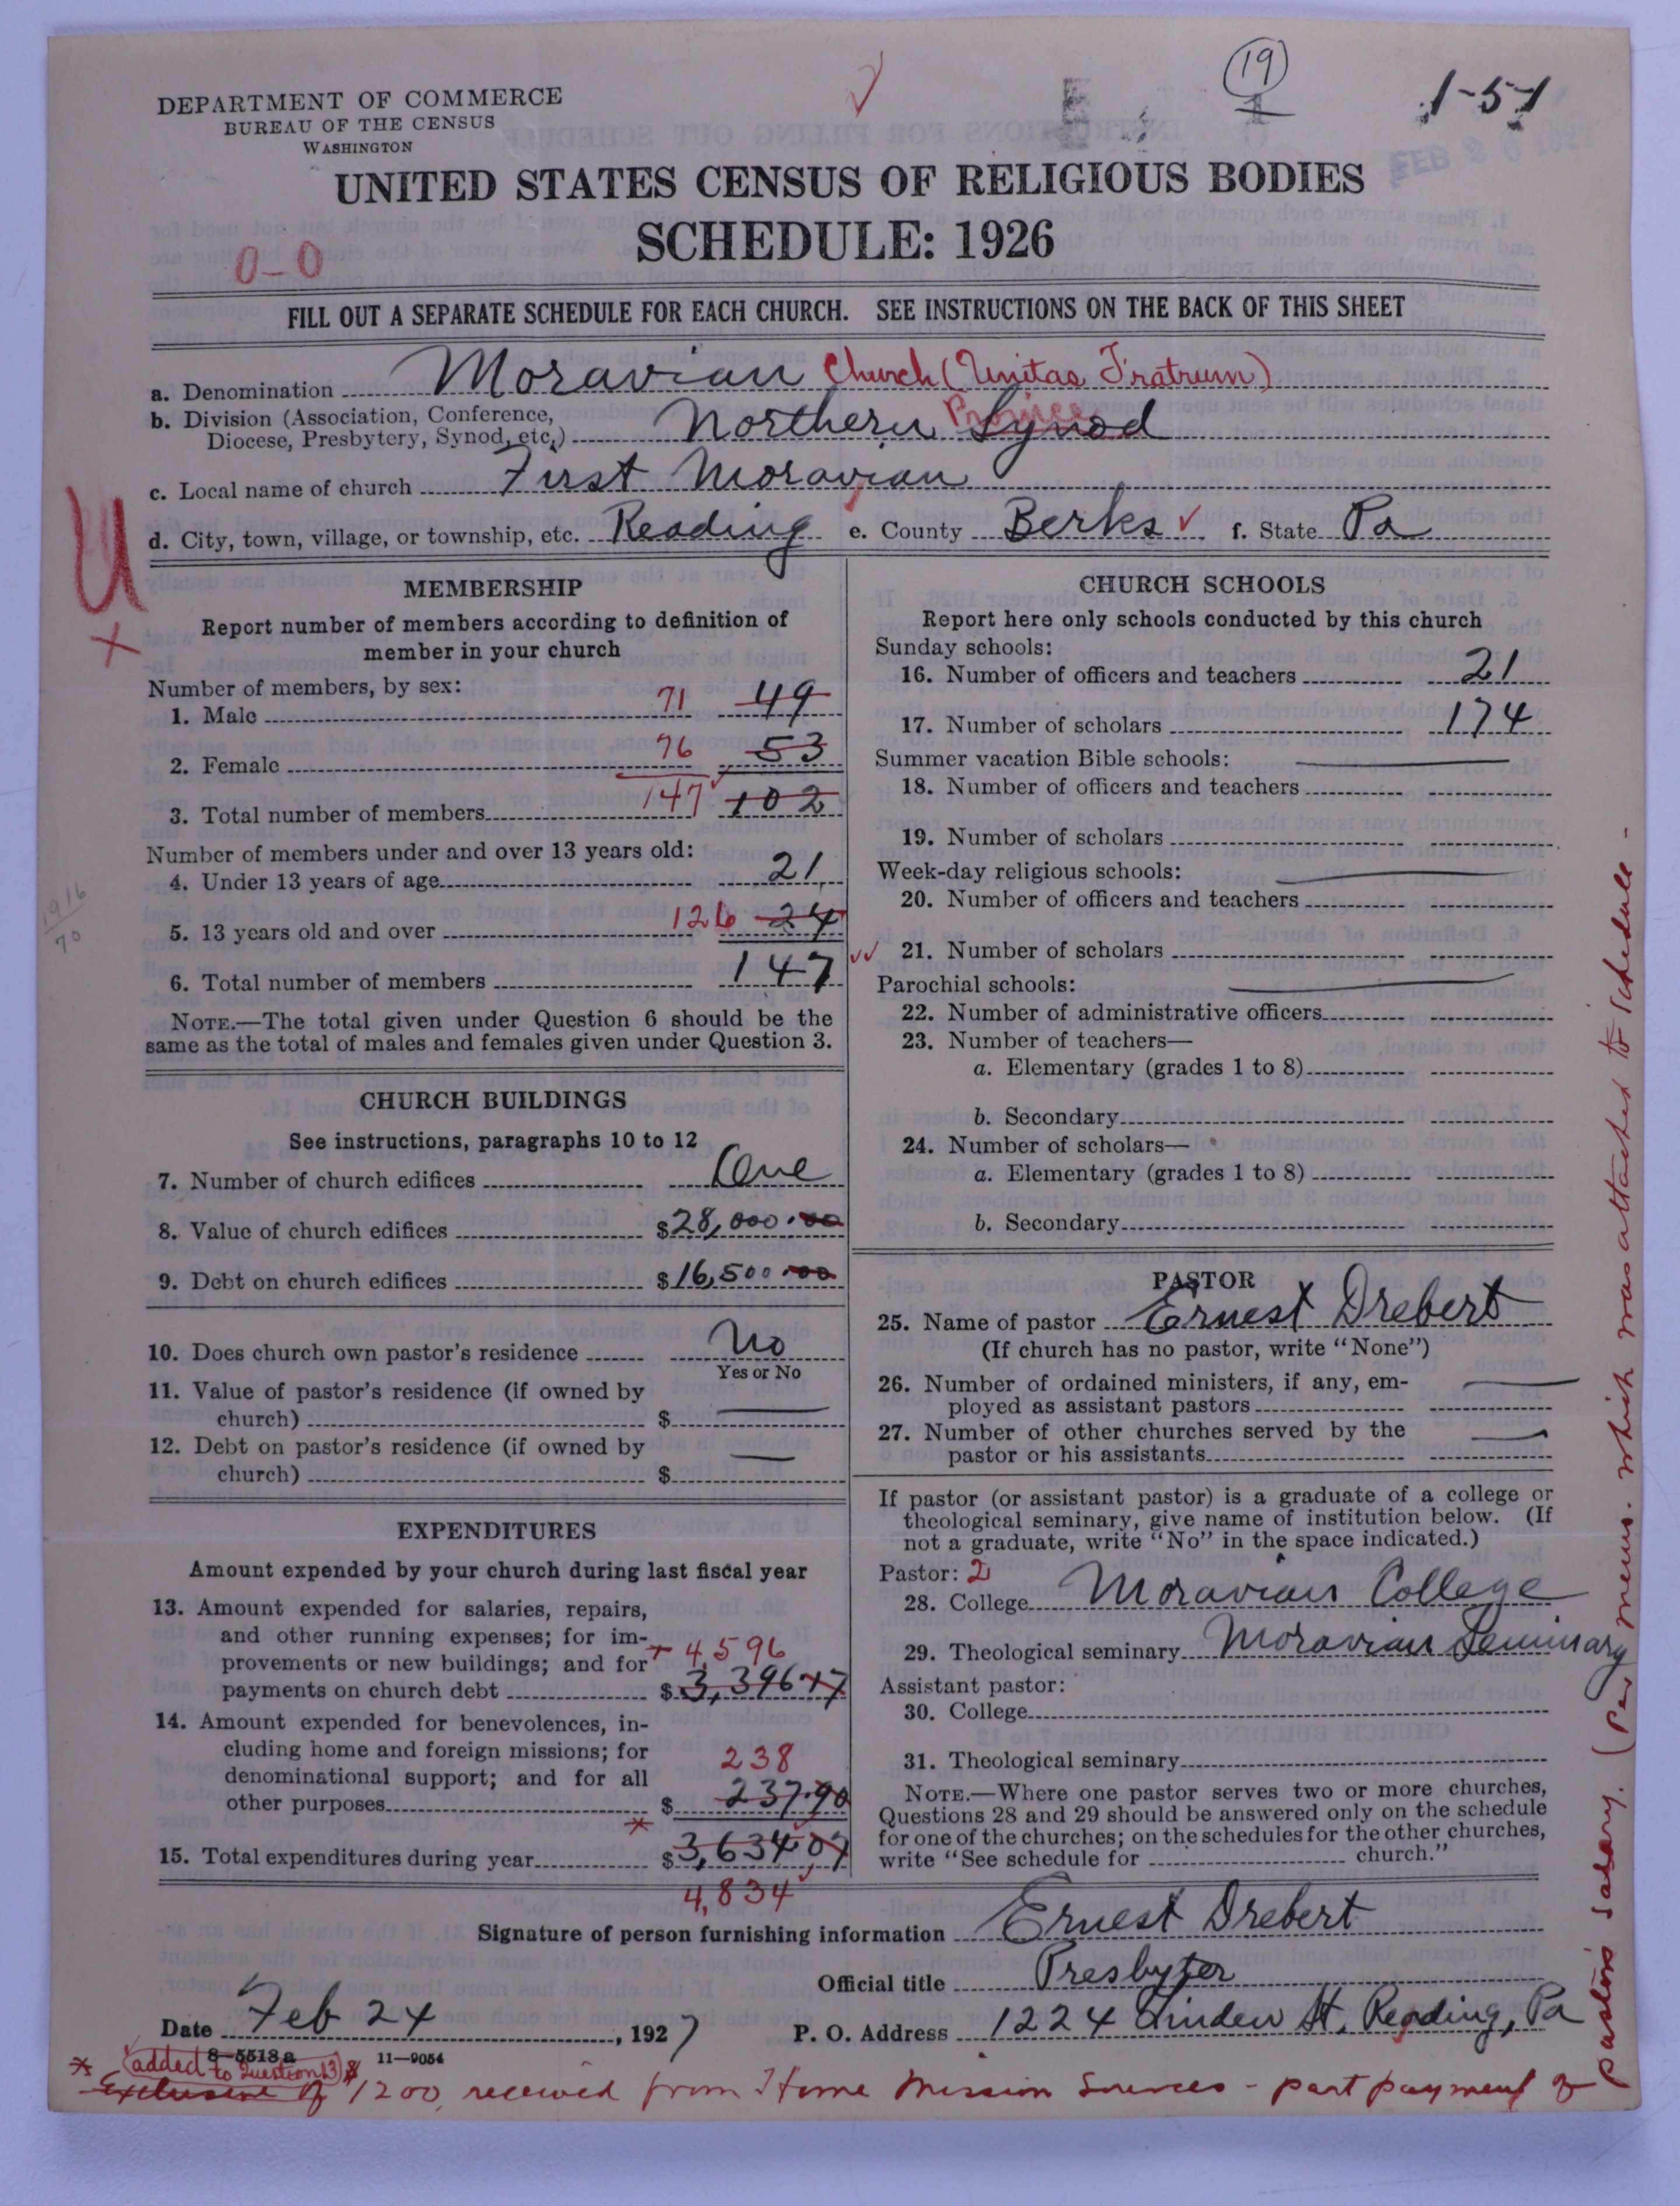 19
1-51
FEB
DEPARTMENT OF COMMERCE
BUREAU OF THE CENSUS
WASHINGTON
UNITED STATES CENSUS OF RELIGIOUS BODIES
SCHEDULE: 1926
0-0
FILL OUT A SEPARATE SCHEDULE FOR EACH CHURCH. SEE INSTRUCTIONS ON THE BACK OF THIS SHEET
a. Denomination Moravian Church (Unitas Fratrum)
b. Division (Association, Conference,
Diocese, Presbytery, Synod, etc.) Northern Synod Province
c. Local name of church First Moravian
d. City, town, village, or township, etc. Reading e. County Berks f. State Pa
U
MEMBERSHIP
Report number of members according to definition of
member in your church
Number of members, by sex:
1. Male 71 49
2. Female 76 53
3. Total number of members 147 102
Number of members under and over 13 years old:
4. Under 13 years of age 21
1916
70
5. 13 years old and over 126 24
6. Total number of members 147
NOTE.—The total given under Question 6 should be the
same as the total of males and females given under Question 3.
CHURCH BUILDINGS
See instructions, paragraphs 10 to 12
7. Number of church edifices One
8. Value of church edifices $28,000.00
9. Debt on church edifices $16,500.00
10. Does church own pastor's residence No
Yes or No
11. Value of pastor's residence (if owned by
church) $
12. Debt on pastor's residence (if owned by
church) $
EXPENDITURES
Amount expended by your church during last fiscal year
13. Amount expended for salaries, repairs,
and other running expenses; for im-
provements or new buildings; and for 4,596
payments on church debt $3,396.17
14. Amount expended for benevolences, in-
cluding home and foreign missions; for
denominational support; and for all 238
other purposes $ 237.90
15. Total expenditures during year $3,634.07
4,834
CHURCH SCHOOLS
Report here only schools conducted by this church
Sunday schools:
16. Number of officers and teachers 21
17. Number of scholars 174
Summer vacation Bible schools:
18. Number of officers and teachers
19. Number of scholars
Week-day religious schools:
20. Number of officers and teachers
21. Number of scholars
Parochial schools:
22. Number of administrative officers
23. Number of teachers—
a. Elementary (grades 1 to 8)
b. Secondary
24. Number of scholars—
a. Elementary (grades 1 to 8)
b. Secondary
PASTOR
25. Name of pastor Ernest Drebert
(If church has no pastor, write "None")
26. Number of ordained ministers, if any, em-
ployed as assistant pastors
27. Number of other churches served by the
pastor or his assistants
If pastor (or assistant pastor) is a graduate of a college or
theological seminary, give name of institution below. (If
not a graduate, write "No" in the space indicated.)
Pastor: 2
28. College Moravian College
29. Theological seminary Moravian Seminary
Assistant pastor:
30. College
31. Theological seminary
NOTE.—Where one pastor serves two or more churches,
Questions 28 and 29 should be answered only on the schedule
for one of the churches; on the schedules for the other churches,
write "See schedule for church."
Signature of person furnishing information Ernest Drebert
Official title Presbyter
Date Feb 24, 1927 P. O. Address 1224 Linden St. Reading, Pa
8-5513a 11-9054
* added to Question 13
Exclusive of $1200 received from Home Mission Sources - part payment of
pastor's salary. (Per memo. which was attached to schedule -